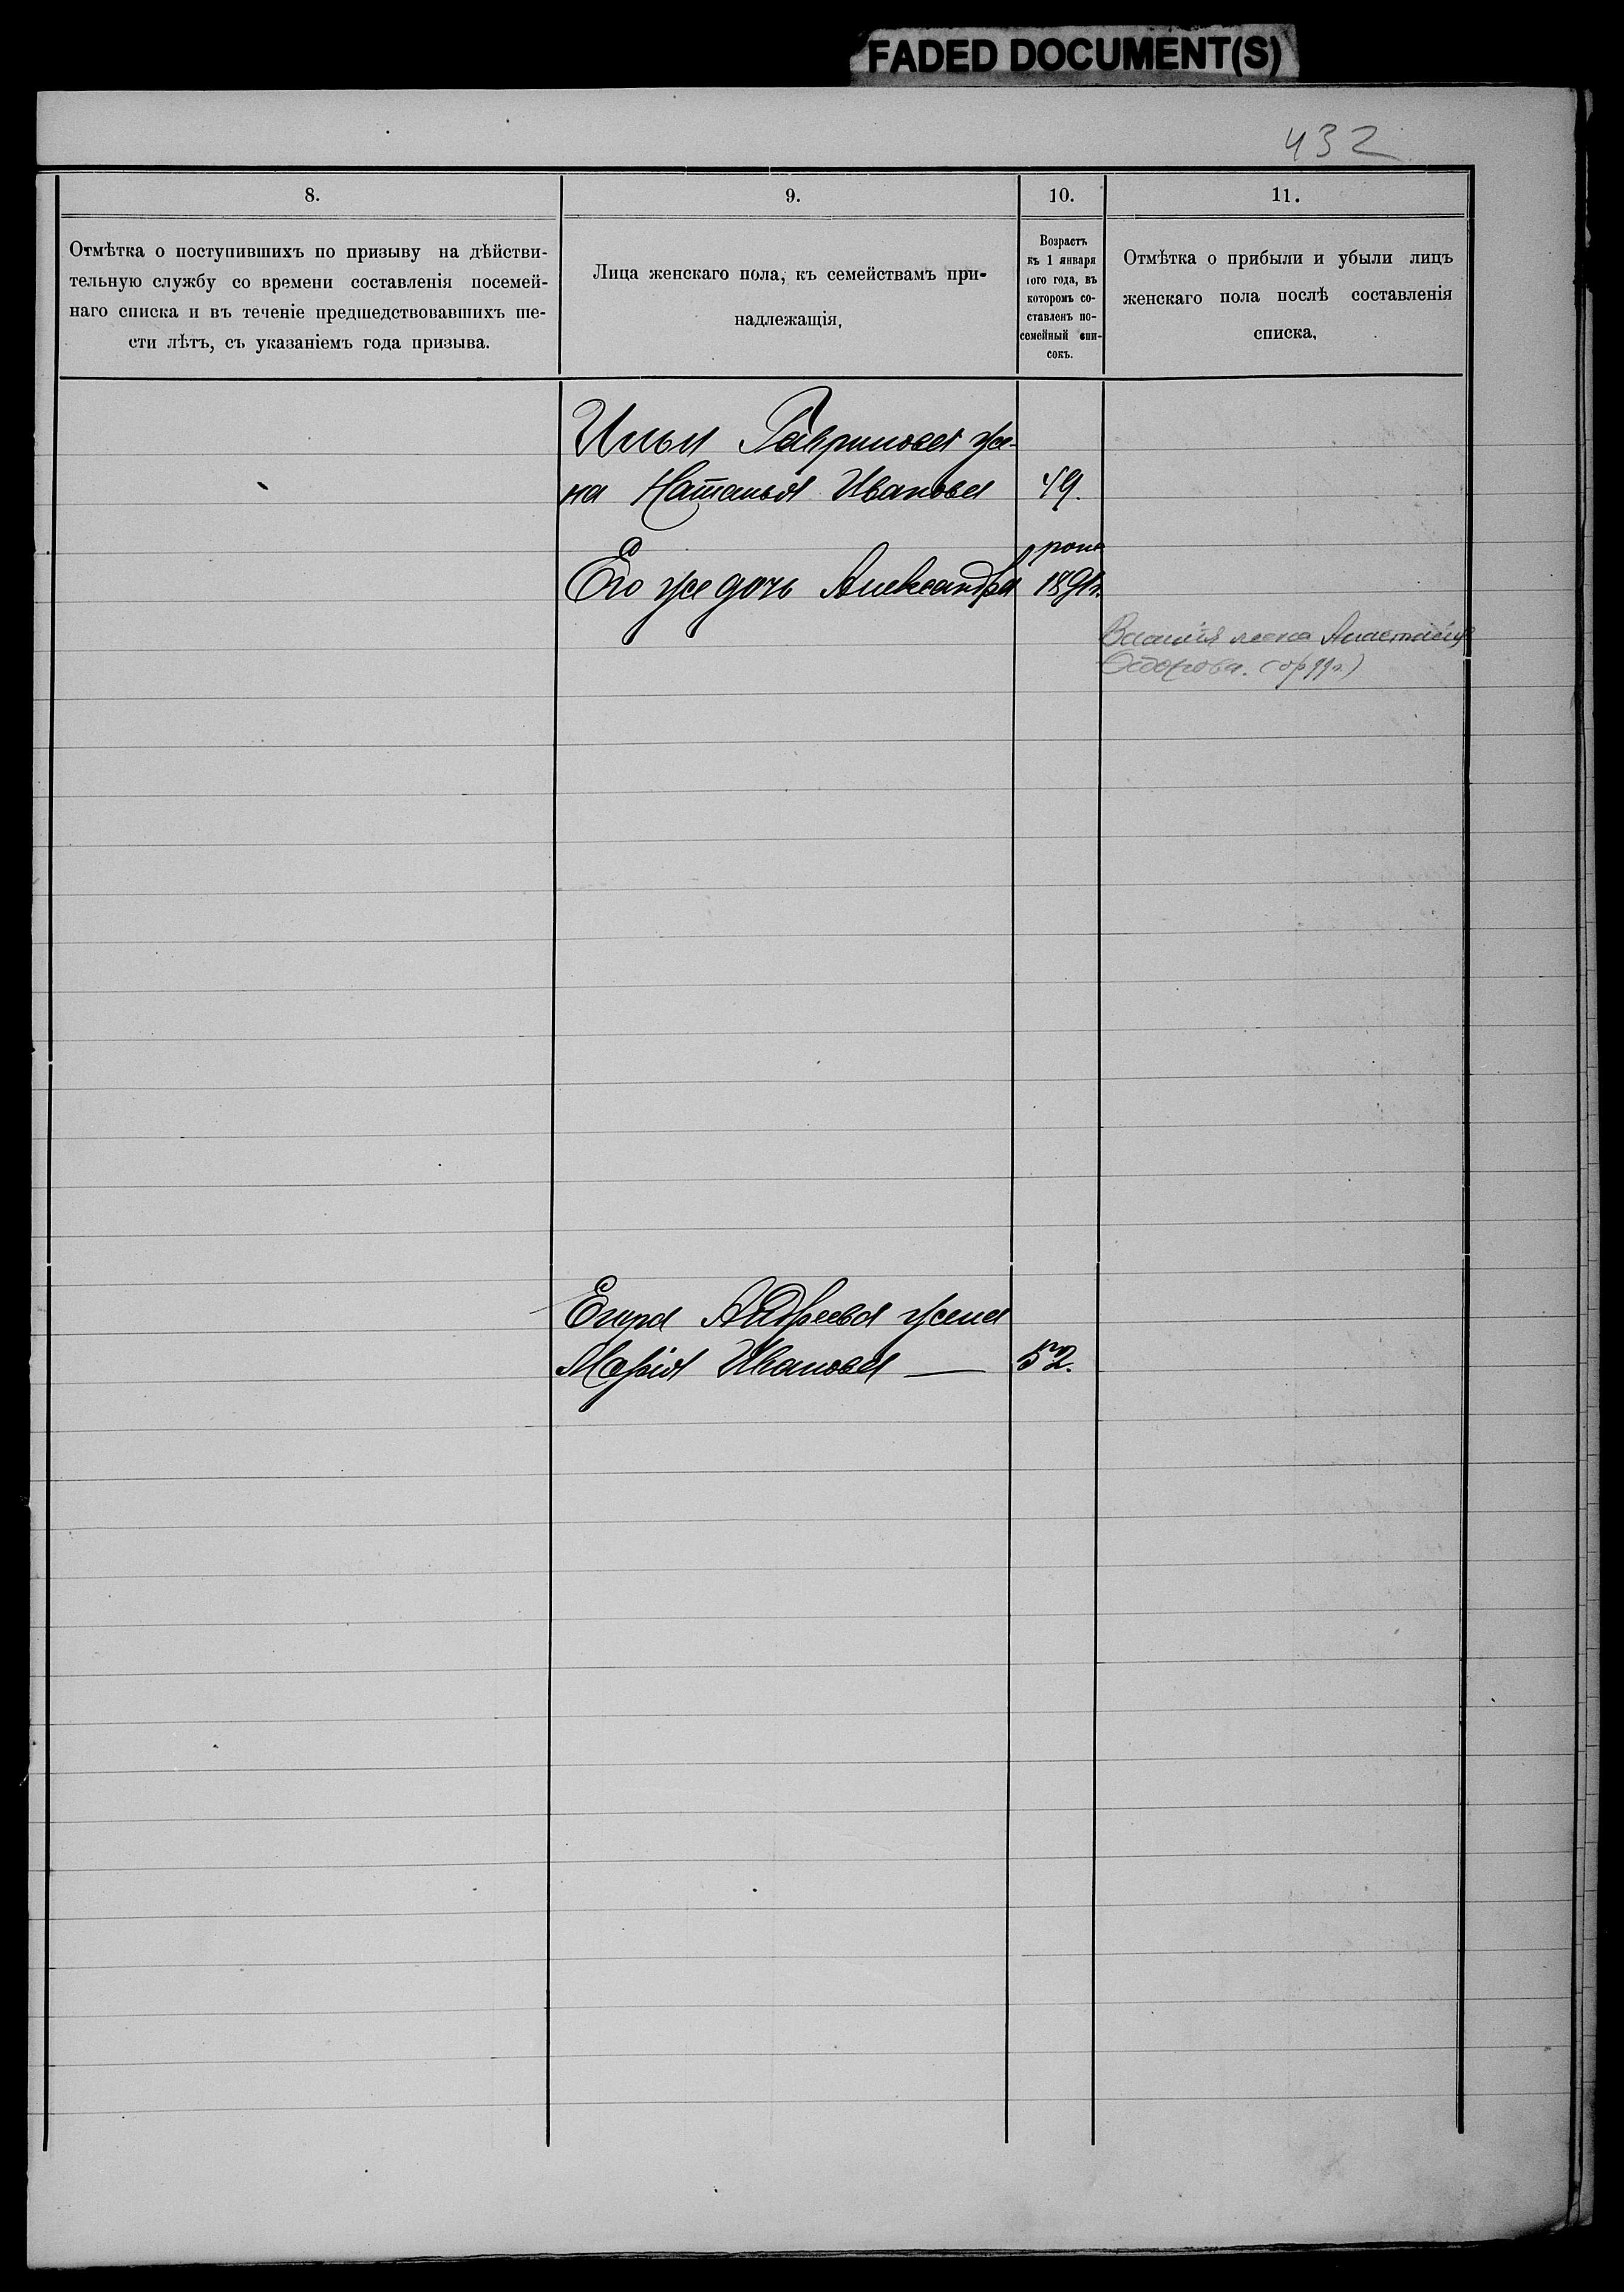 FADED DOCUMENT(S)
432
8.
Отмѣтка о поступившихъ по призыву на дѣйстви-
тельную службу со времени составленія посемей-
наго списка и въ теченіе предшедствовавшихъ ше-
сти лѣтъ, съ указаніемъ года призыва.
9.
Лица женскаго пола, къ семействамъ при-
надлежащія,
10.
Возрастъ
къ 1 января
того года, въ
которомъ со-
ставленъ по-
семейный спи-
сокъ.
11.
Отмѣтка о прибыли и убыли лицъ
женскаго пола послѣ составленія
списка.
Ильи Гаврилова же-
на Наталья Иванова 49.
Его же дочь Александра 1891г.
Василія жена Анастасія
Егора Андреева жена
Марія Иванова — 52.